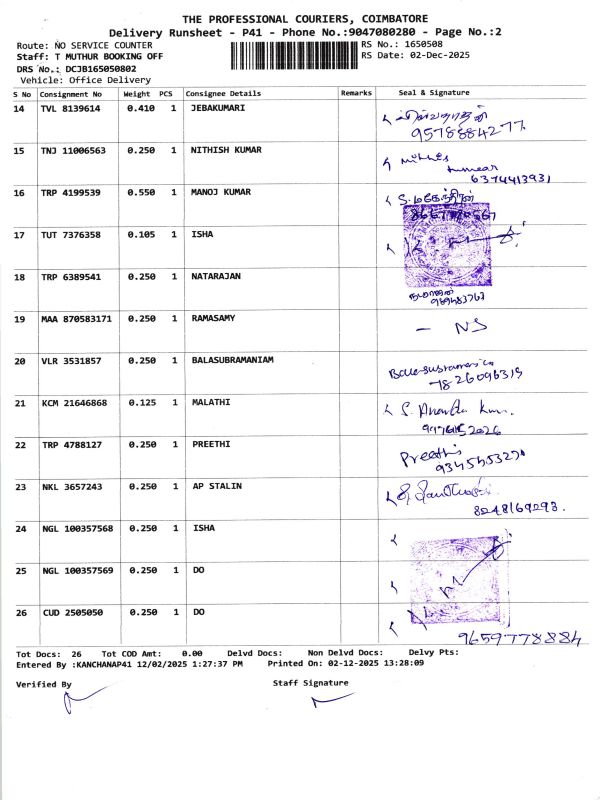 THE PROFESSIONAL COURIERS, COIMBATORE
Delivery Runsheet - P41 - Phone No.:9047080280 - Page No.:2
Route: NO SERVICE COUNTER RS No.: 1650508
Staff: T MUTHUR BOOKING OFF RS Date: 02-Dec-2025
DRS No.: DCJB165050802
Vehicle: Office Delivery
S No Consignment No Weight PCS Consignee Details Remarks Seal & Signature
14 TVL 8139614 0.410 1 JEBAKUMARI
9578884277
15 TNJ 11006563 0.250 1 NITHISH KUMAR
6374413931
16 TRP 4199539 0.550 1 MANOJ KUMAR S. மகேந்திரன்
17 TUT 7376358 0.105 1 ISHA
18 TRP 6389541 0.250 1 NATARAJAN
19 MAA 870583171 0.250 1 RAMASAMY — NS
20 VLR 3531857 0.250 1 BALASUBRAMANIAM
7826096319
21 KCM 21646868 0.125 1 MALATHI
22 TRP 4788127 0.250 1 PREETHI Preethi
23 NKL 3657243 0.250 1 AP STALIN
8248169293.
24 NGL 100357568 0.250 1 ISHA
25 NGL 100357569 0.250 1 DO
26 CUD 2505050 0.250 1 DO
9659778884
Tot Docs: 26 Tot COD Amt: 0.00 Delvd Docs: Non Delvd Docs: Delvy Pts:
Entered By :KANCHANAP41 12/02/2025 1:27:37 PM Printed On: 02-12-2025 13:28:09
Verified By Staff Signature